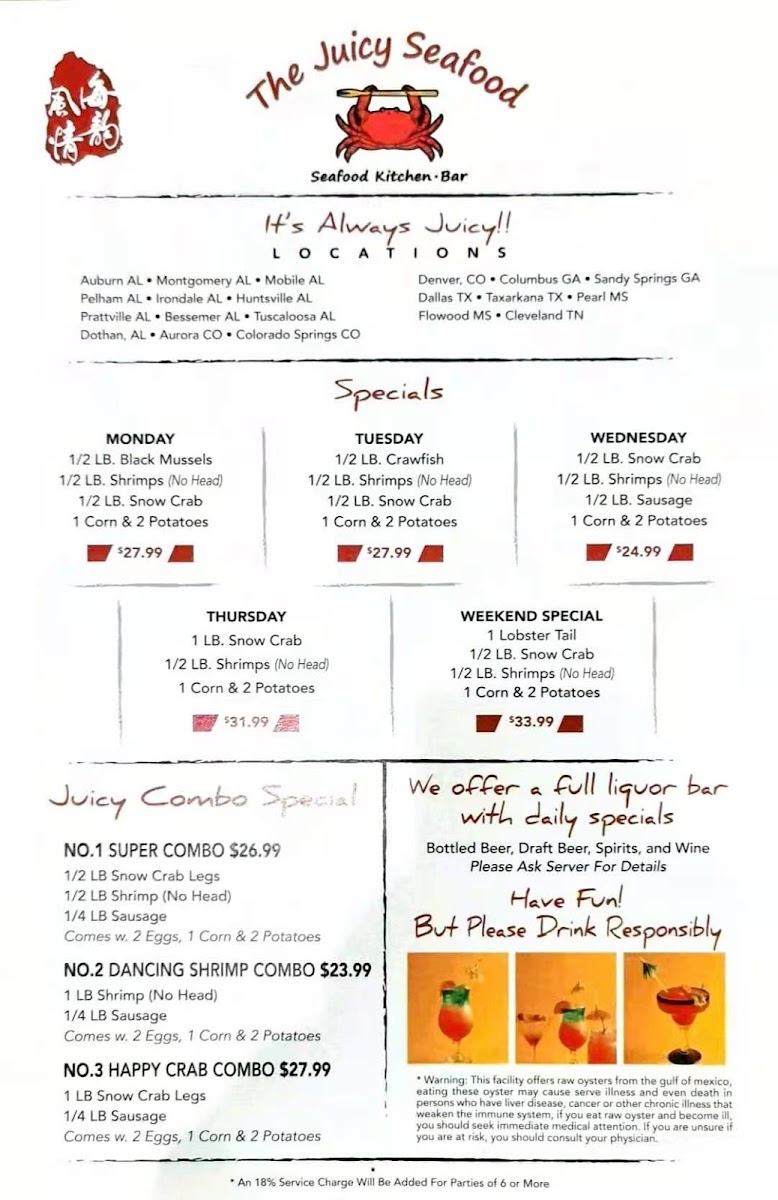 海韵
風情
The Juicy Seafood
Seafood Kitchen • Bar
It's Always Juicy!!
LOCATIONS
Auburn AL • Montgomery AL • Mobile AL
Pelham AL • Irondale AL • Huntsville AL
Prattville AL • Bessemer AL • Tuscaloosa AL
Dothan, AL • Aurora CO • Colorado Springs CO
Denver, CO • Columbus GA • Sandy Springs GA
Dallas TX • Taxarkana TX • Pearl MS
Flowood MS • Cleveland TN
Specials
MONDAY
1/2 LB. Black Mussels
1/2 LB. Shrimps (No Head)
1/2 LB. Snow Crab
1 Corn & 2 Potatoes
$27.99
TUESDAY
1/2 LB. Crawfish
1/2 LB. Shrimps (No Head)
1/2 LB. Snow Crab
1 Corn & 2 Potatoes
$27.99
WEDNESDAY
1/2 LB. Snow Crab
1/2 LB. Shrimps (No Head)
1/2 LB. Sausage
1 Corn & 2 Potatoes
$24.99
THURSDAY
1 LB. Snow Crab
1/2 LB. Shrimps (No Head)
1 Corn & 2 Potatoes
$31.99
WEEKEND SPECIAL
1 Lobster Tail
1/2 LB. Snow Crab
1/2 LB. Shrimps (No Head)
1 Corn & 2 Potatoes
$33.99
Juicy Combo Special
NO.1 SUPER COMBO $26.99
1/2 LB Snow Crab Legs
1/2 LB Shrimp (No Head)
1/4 LB Sausage
Comes w. 2 Eggs, 1 Corn & 2 Potatoes
NO.2 DANCING SHRIMP COMBO $23.99
1 LB Shrimp (No Head)
1/4 LB Sausage
Comes w. 2 Eggs, 1 Corn & 2 Potatoes
NO.3 HAPPY CRAB COMBO $27.99
1 LB Snow Crab Legs
1/4 LB Sausage
Comes w. 2 Eggs, 1 Corn & 2 Potatoes
We offer a full liquor bar
with daily specials
Bottled Beer, Draft Beer, Spirits, and Wine
Please Ask Server For Details
Have Fun!
But Please Drink Responsibly
* Warning: This facility offers raw oysters from the gulf of mexico,
eating these oyster may cause serve illness and even death in
persons who have liver disease, cancer or other chronic illness that
weaken the immune system, if you eat raw oyster and become ill,
you should seek immediate medical attention. If you are unsure if
you are at risk, you should consult your physician.
* An 18% Service Charge Will Be Added For Parties of 6 or More